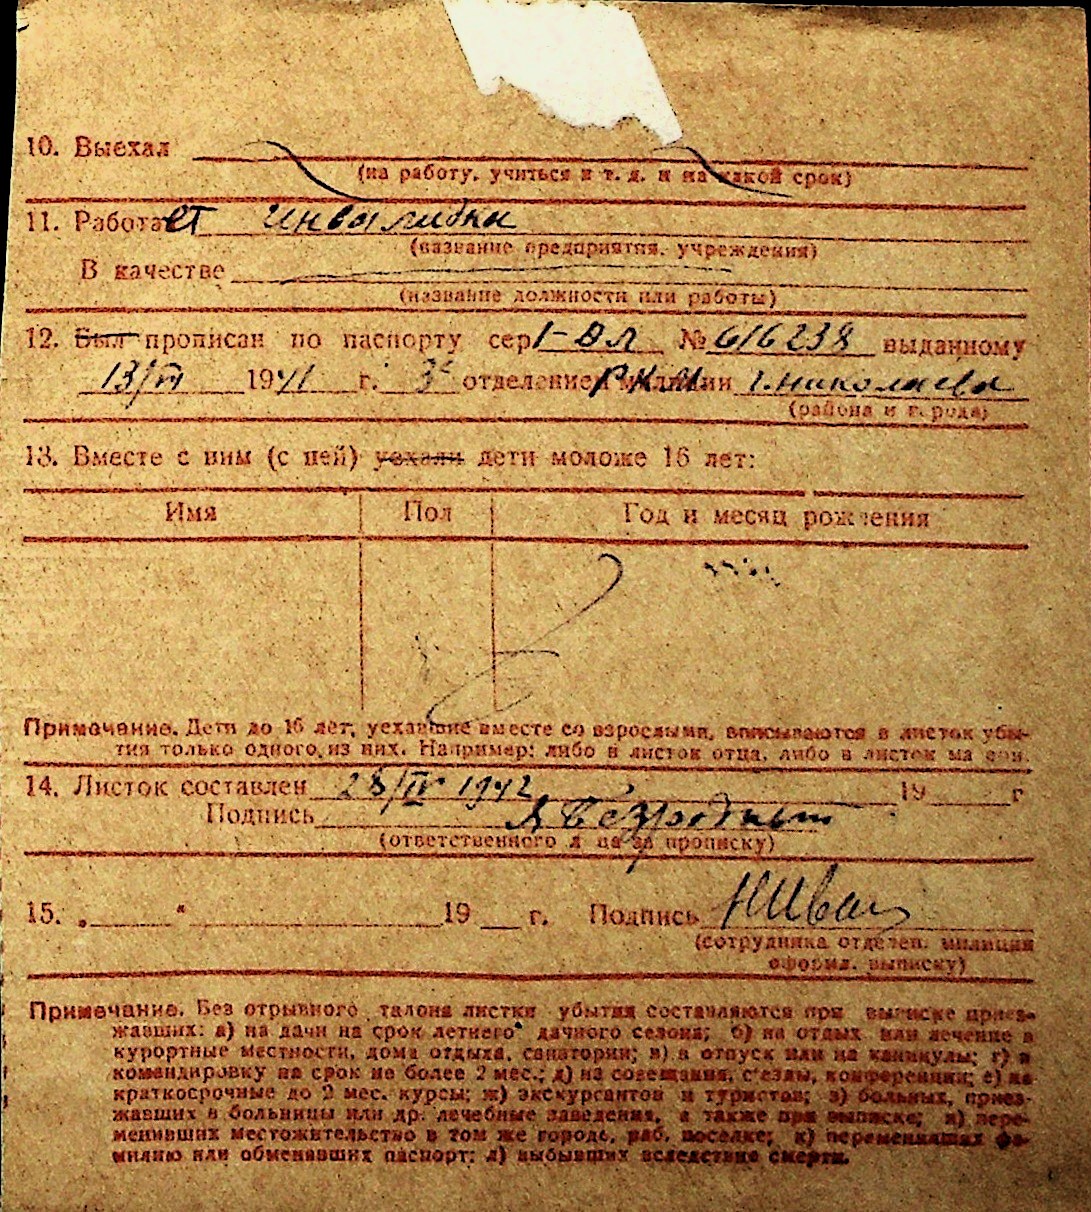 10. Выехал
(на работу, учиться и т. д. и на какой срок)
11. Работает инвалидка
(название предприятия, учреждения)
В качестве
(название должности или работы)
12. Был прописан по паспорту сер I-ОЛ № 616238 выданному
13/VI 1941 г. 3е отделением Р.К.М. г. Николаева
(района и города)
13. Вместе с ним (с ней) уехали дети моложе 16 лет:
Имя Пол Год и месяц рождения
Примечание. Дети до 16 лет, уехавшие вместе со взрослыми, вписываются в листок убы-
тия только одного из них. Например: либо в листок отца, либо в листок матери.
14. Листок составлен 28/IV 1942 19 г
Подпись
(ответственного лица за прописку)
15. „ “ 19 г. Подпись
(сотрудника отделен. милиции
оформл. выписку)
Примечание. Без отрывного талона листки убытия составляются при выписке приез-
жавших: а) на дачи на срок летнего дачного сезона; б) на отдых или лечение в
курортные местности, дома отдыха, санатории; в) в отпуск или на каникулы; г) в
командировку на срок не более 2 мес.; д) на совещания, с'езды, конференции; е) на
краткосрочные до 2 мес. курсы; ж) экскурсантов и туристов; з) больных, приез-
жавших в больницы или др. лечебные заведения, а также при выписке; и) пере-
менивших местожительство в том же городе, раб. поселке; к) переменивших фа-
милию или обменявших паспорт; л) выбывших вследствие смерти.